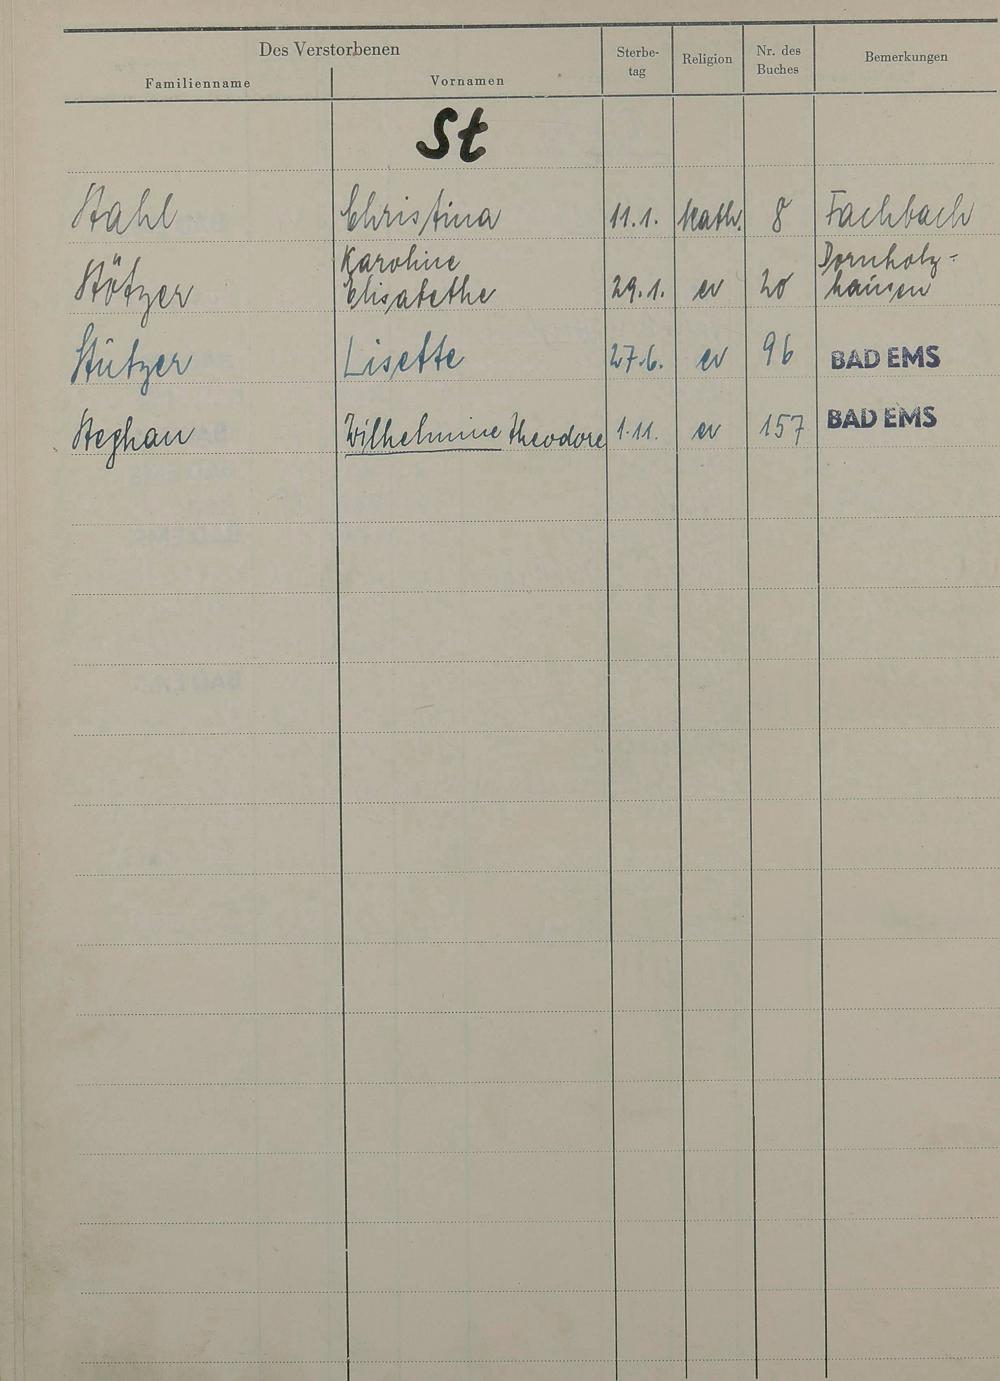 Des Verstorbenen
Familienname Vornamen Sterbe-
tag Religion Nr. des
Buches Bemerkungen
St
Stahl Christina 11.1. Kath. 8 Fachbach
Stötzer Karoline
Elisabethe 29.1. ev 20 Dornholz-
hausen
Stützer Lisette 27.6. ev 96 BAD EMS
Steghan Wilhelmine Theodore 1.11. ev 157 BAD EMS